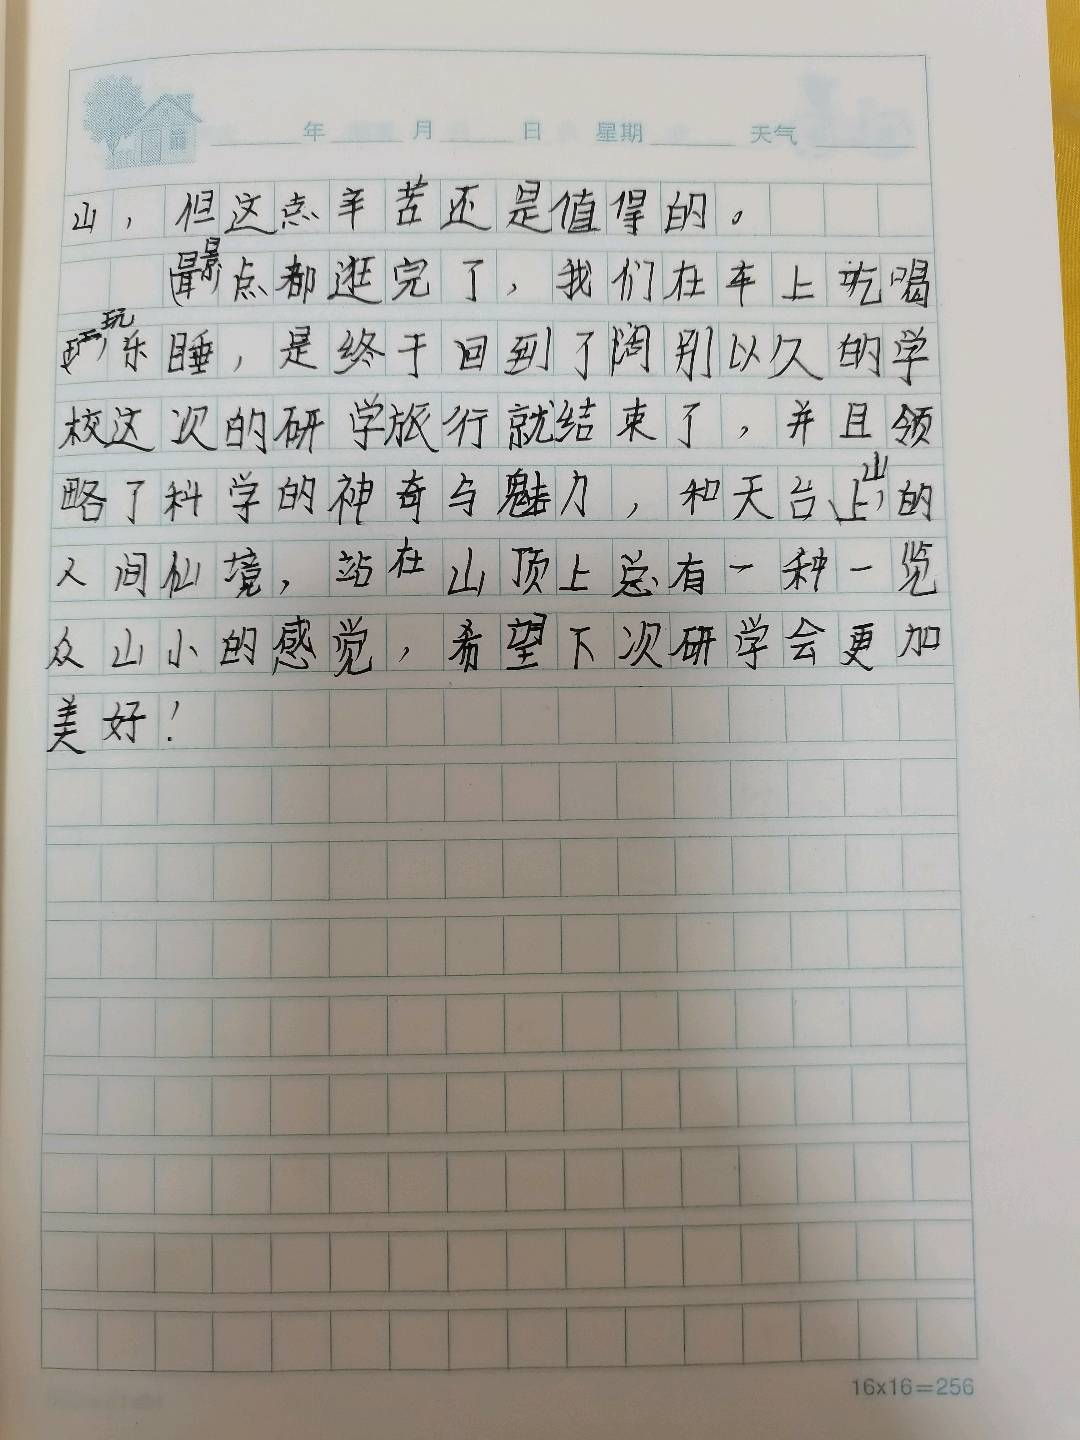 年 月 日 星期 天气
山，但这点辛苦还是值得的。
景点都逛完了，我们在车上吃喝
玩乐睡，是终于回到了阔别以久的学
校这次的研学旅行就结束了，并且领
略了科学的神奇与魅力，和天台山的
人间仙境，站在山顶上总有一种一览
众山小的感觉，希望下次研学会更加
美好！
16x16=256